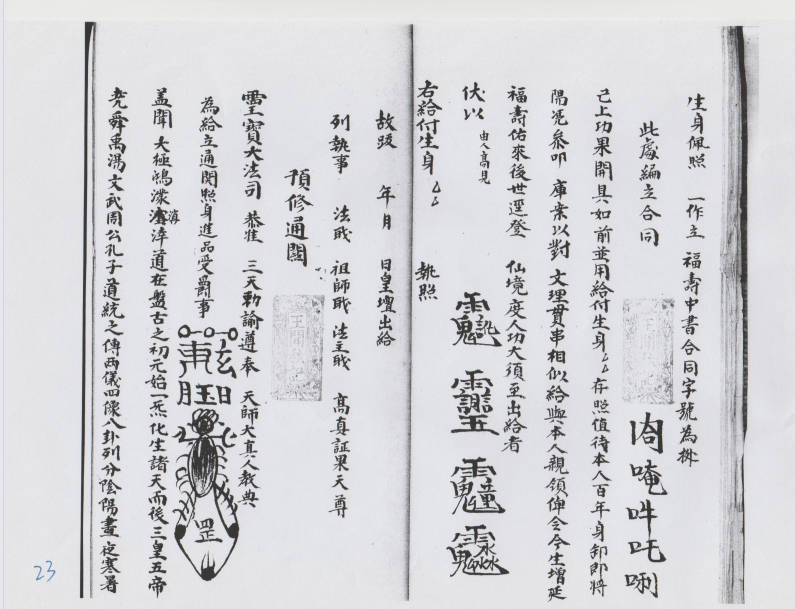 生身佩照 一作立 福壽中書合同字號為憑
此處編立合同
已上功果開具如前並用給付生身厶厶存照值待本人百年身卸即將
陽憑參叩 庫案以對 文理貫串相似給與本人親領俾令今生增延
福壽佑來後世逕登 仙境度人功大須至出給者
伏以 由人高見
右給付生身厶厶 執照
故跋 年月 日皇壇出給
列執事 法戝 祖師戝 法主戝 高真証果天尊
預修通關
靈寶大法司 恭准 三天勅諭遵奉 天師大真人教典
為給立通関照身進品受爵事
盖聞 大極鴻濛溟涬道在盤古之初元始一炁化生諸天而後三皇五帝
堯舜禹湯文武周公孔子道統之傳兩儀四像八卦列分陰陽晝夜寒暑
23